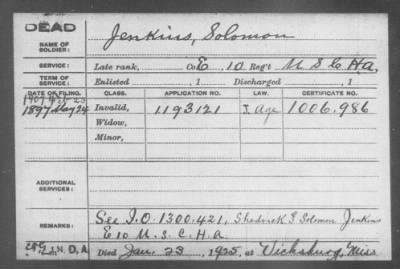 DEAD
NAME OF SOLDIER: Jenkins, Solomon
SERVICE: Late rank, Co. E, 10 Reg't U.S.C.H.A.
TERM OF SERVICE: Enlisted , 1 Discharged , 1
DATE OF FILING. CLASS. APPLICATION NO. LAW. CERTIFICATE NO.
1897 May 24 Invalid, 1193121 Age 1006.986
Widow,
Minor,
ADDITIONAL SERVICES:
REMARKS: See I.O. 1300.421, Shadrick Solomon Jenkins
E 10 U.S.C.H.A
Died Jan. 23, 1925, at Vicksburg, Miss